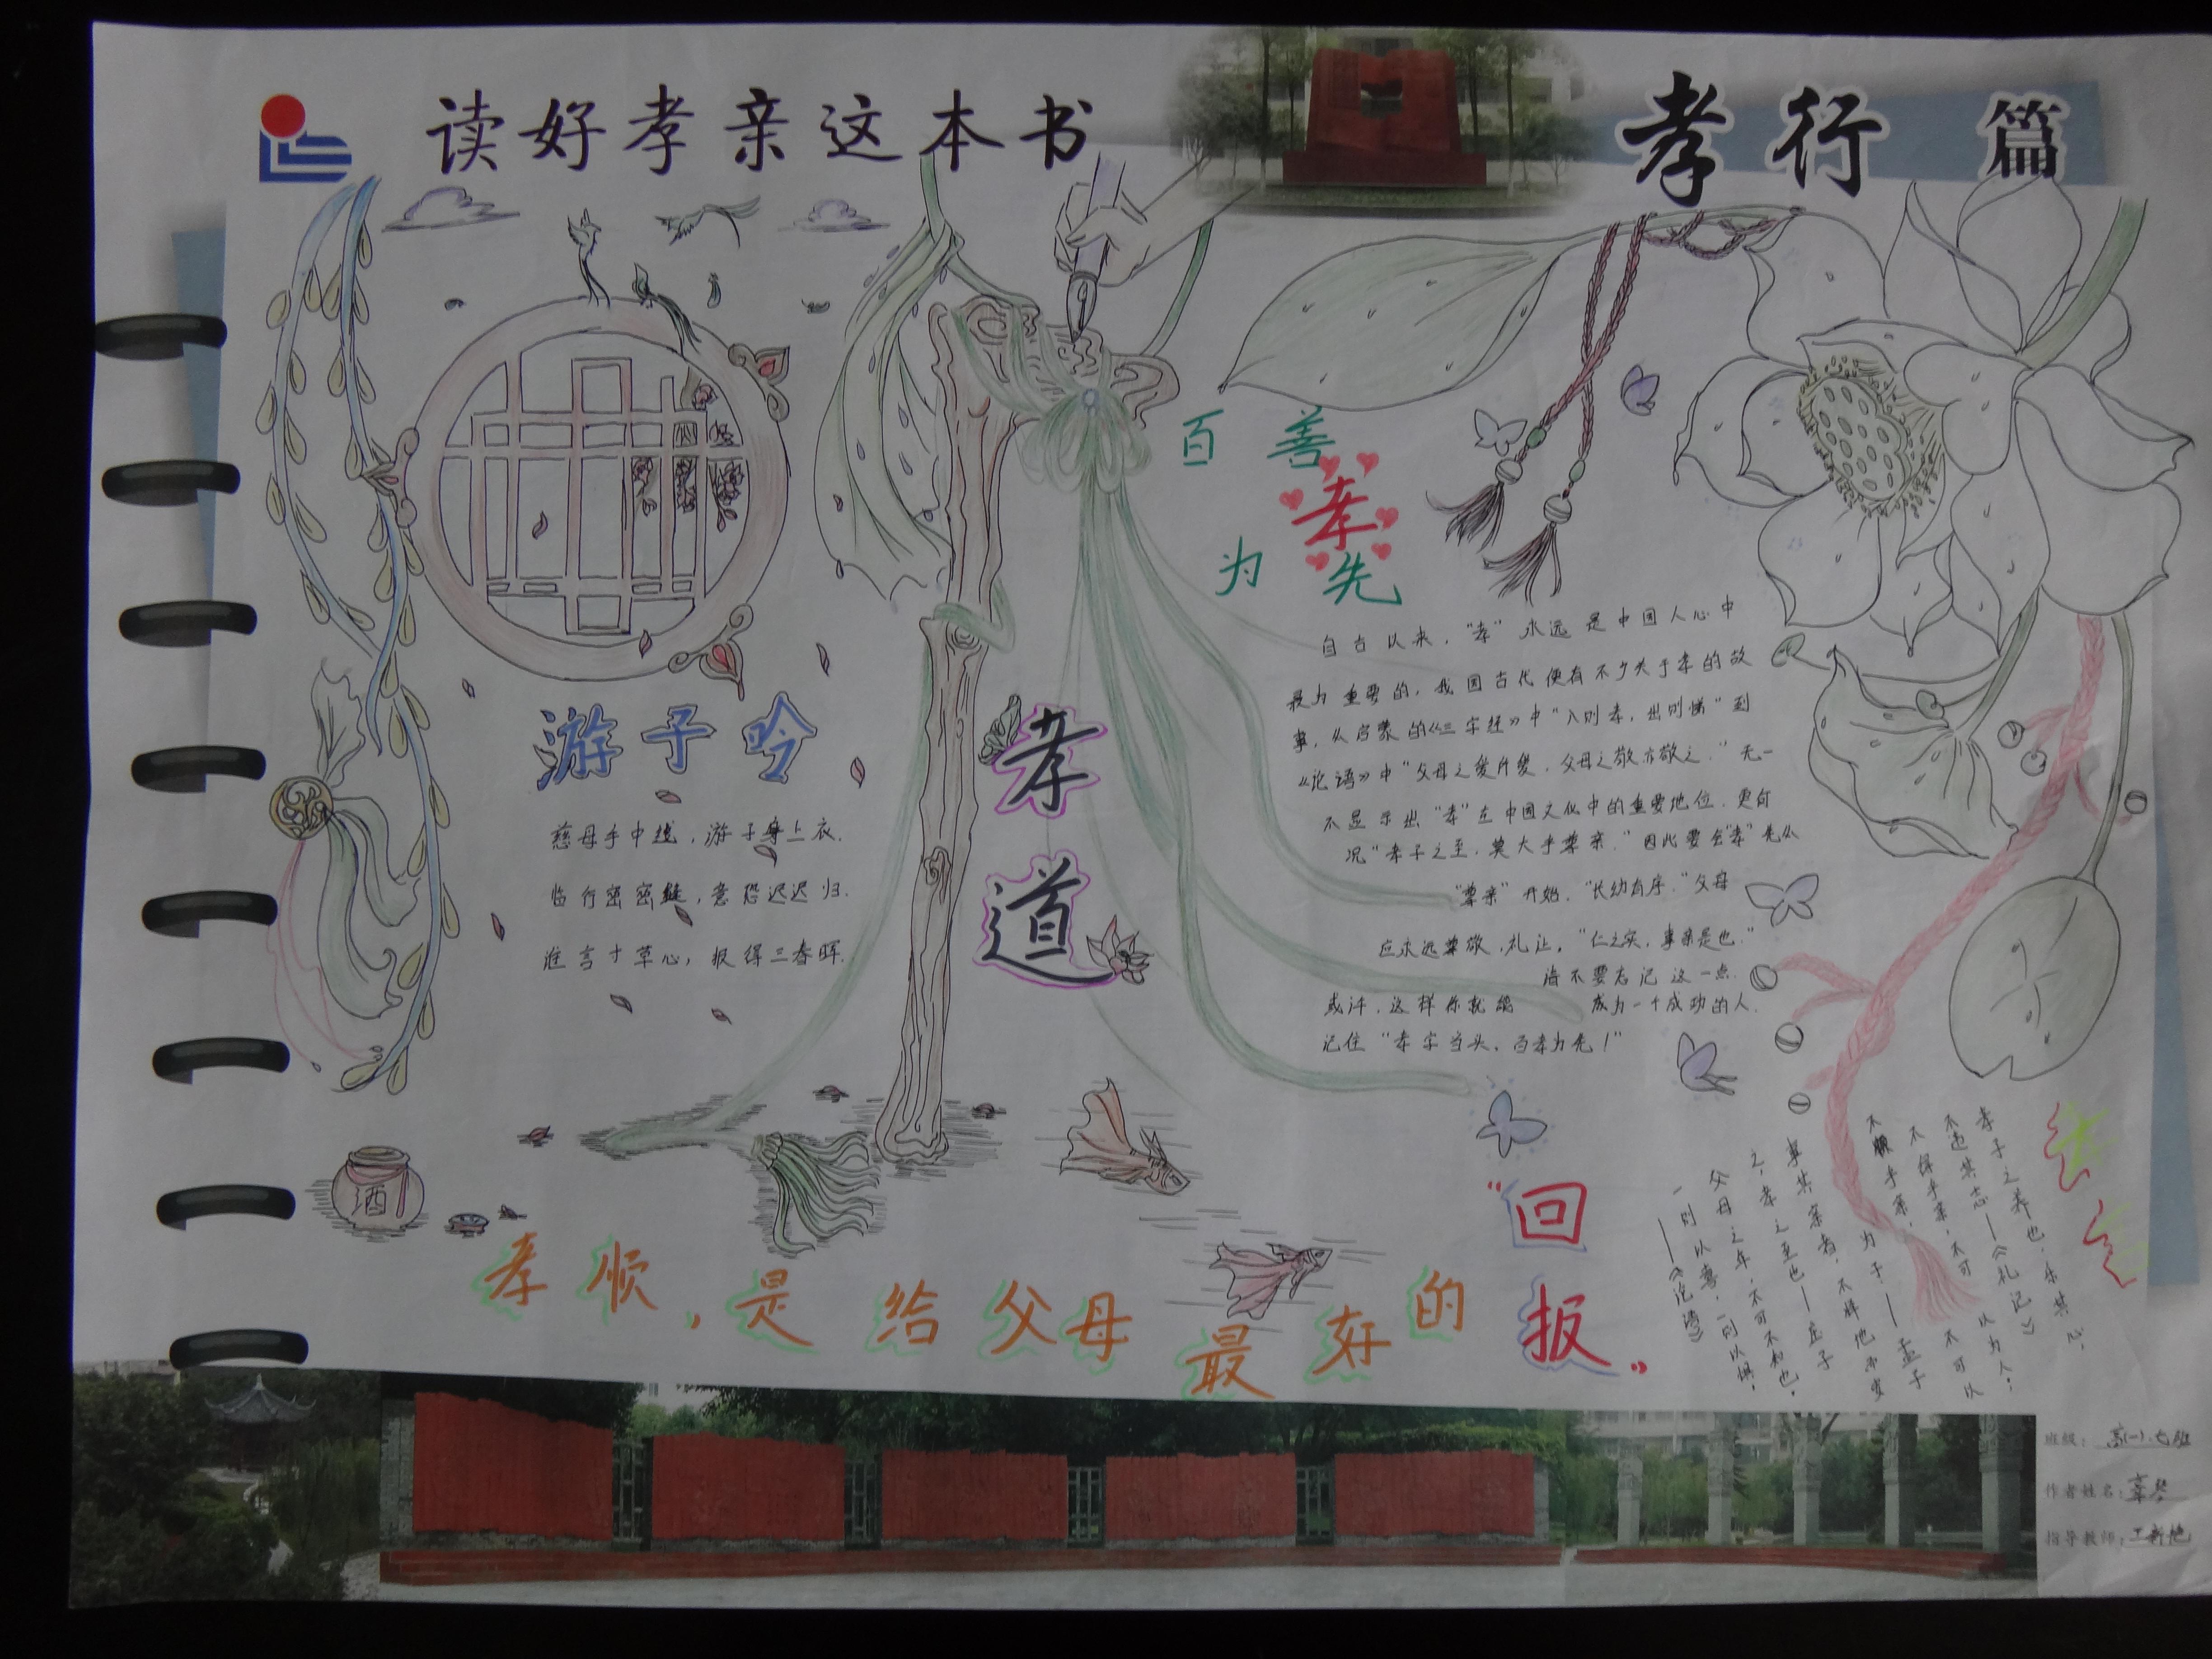 读好孝亲这本书
孝行 篇
百善
孝
为 先
自古以来，“孝”永远是中国人心中
最为重要的，我国古代便有不少关于孝的故
事，从启蒙的《三字经》中“入则孝，出则悌”到
《论语》中“父母之爱所爱，父母之敬亦敬之.”无一
不显示出“孝”在中国文化中的重要地位，更何
况“孝子之至，莫大乎尊亲.”因此要会“孝”先从
“尊亲”开始，“长幼有序.”父母
应永远尊敬，礼让，“仁之实，事亲是也.”
请不要忘记这一点.
或许，这样你就能 成为一个成功的人.
记住“孝字当头，百孝为先！”
游子吟
慈母手中线，游子身上衣.
临行密密缝，意恐迟迟归.
谁言寸草心，报得三春晖.
孝
道
酒
孝顺，是给父母最好的“回报”
孝子之养也，乐其心，
不违其志——《礼记》
不得乎亲，不可以为人；
不顺乎亲，不可以为子.——孟子
事其亲者，不择地而安
之，孝之至也——庄子
父母之年，不可不知也，
一则以喜，一则以惧，
——《论语》
班级：高(一).七班
作者姓名：
指导教师：